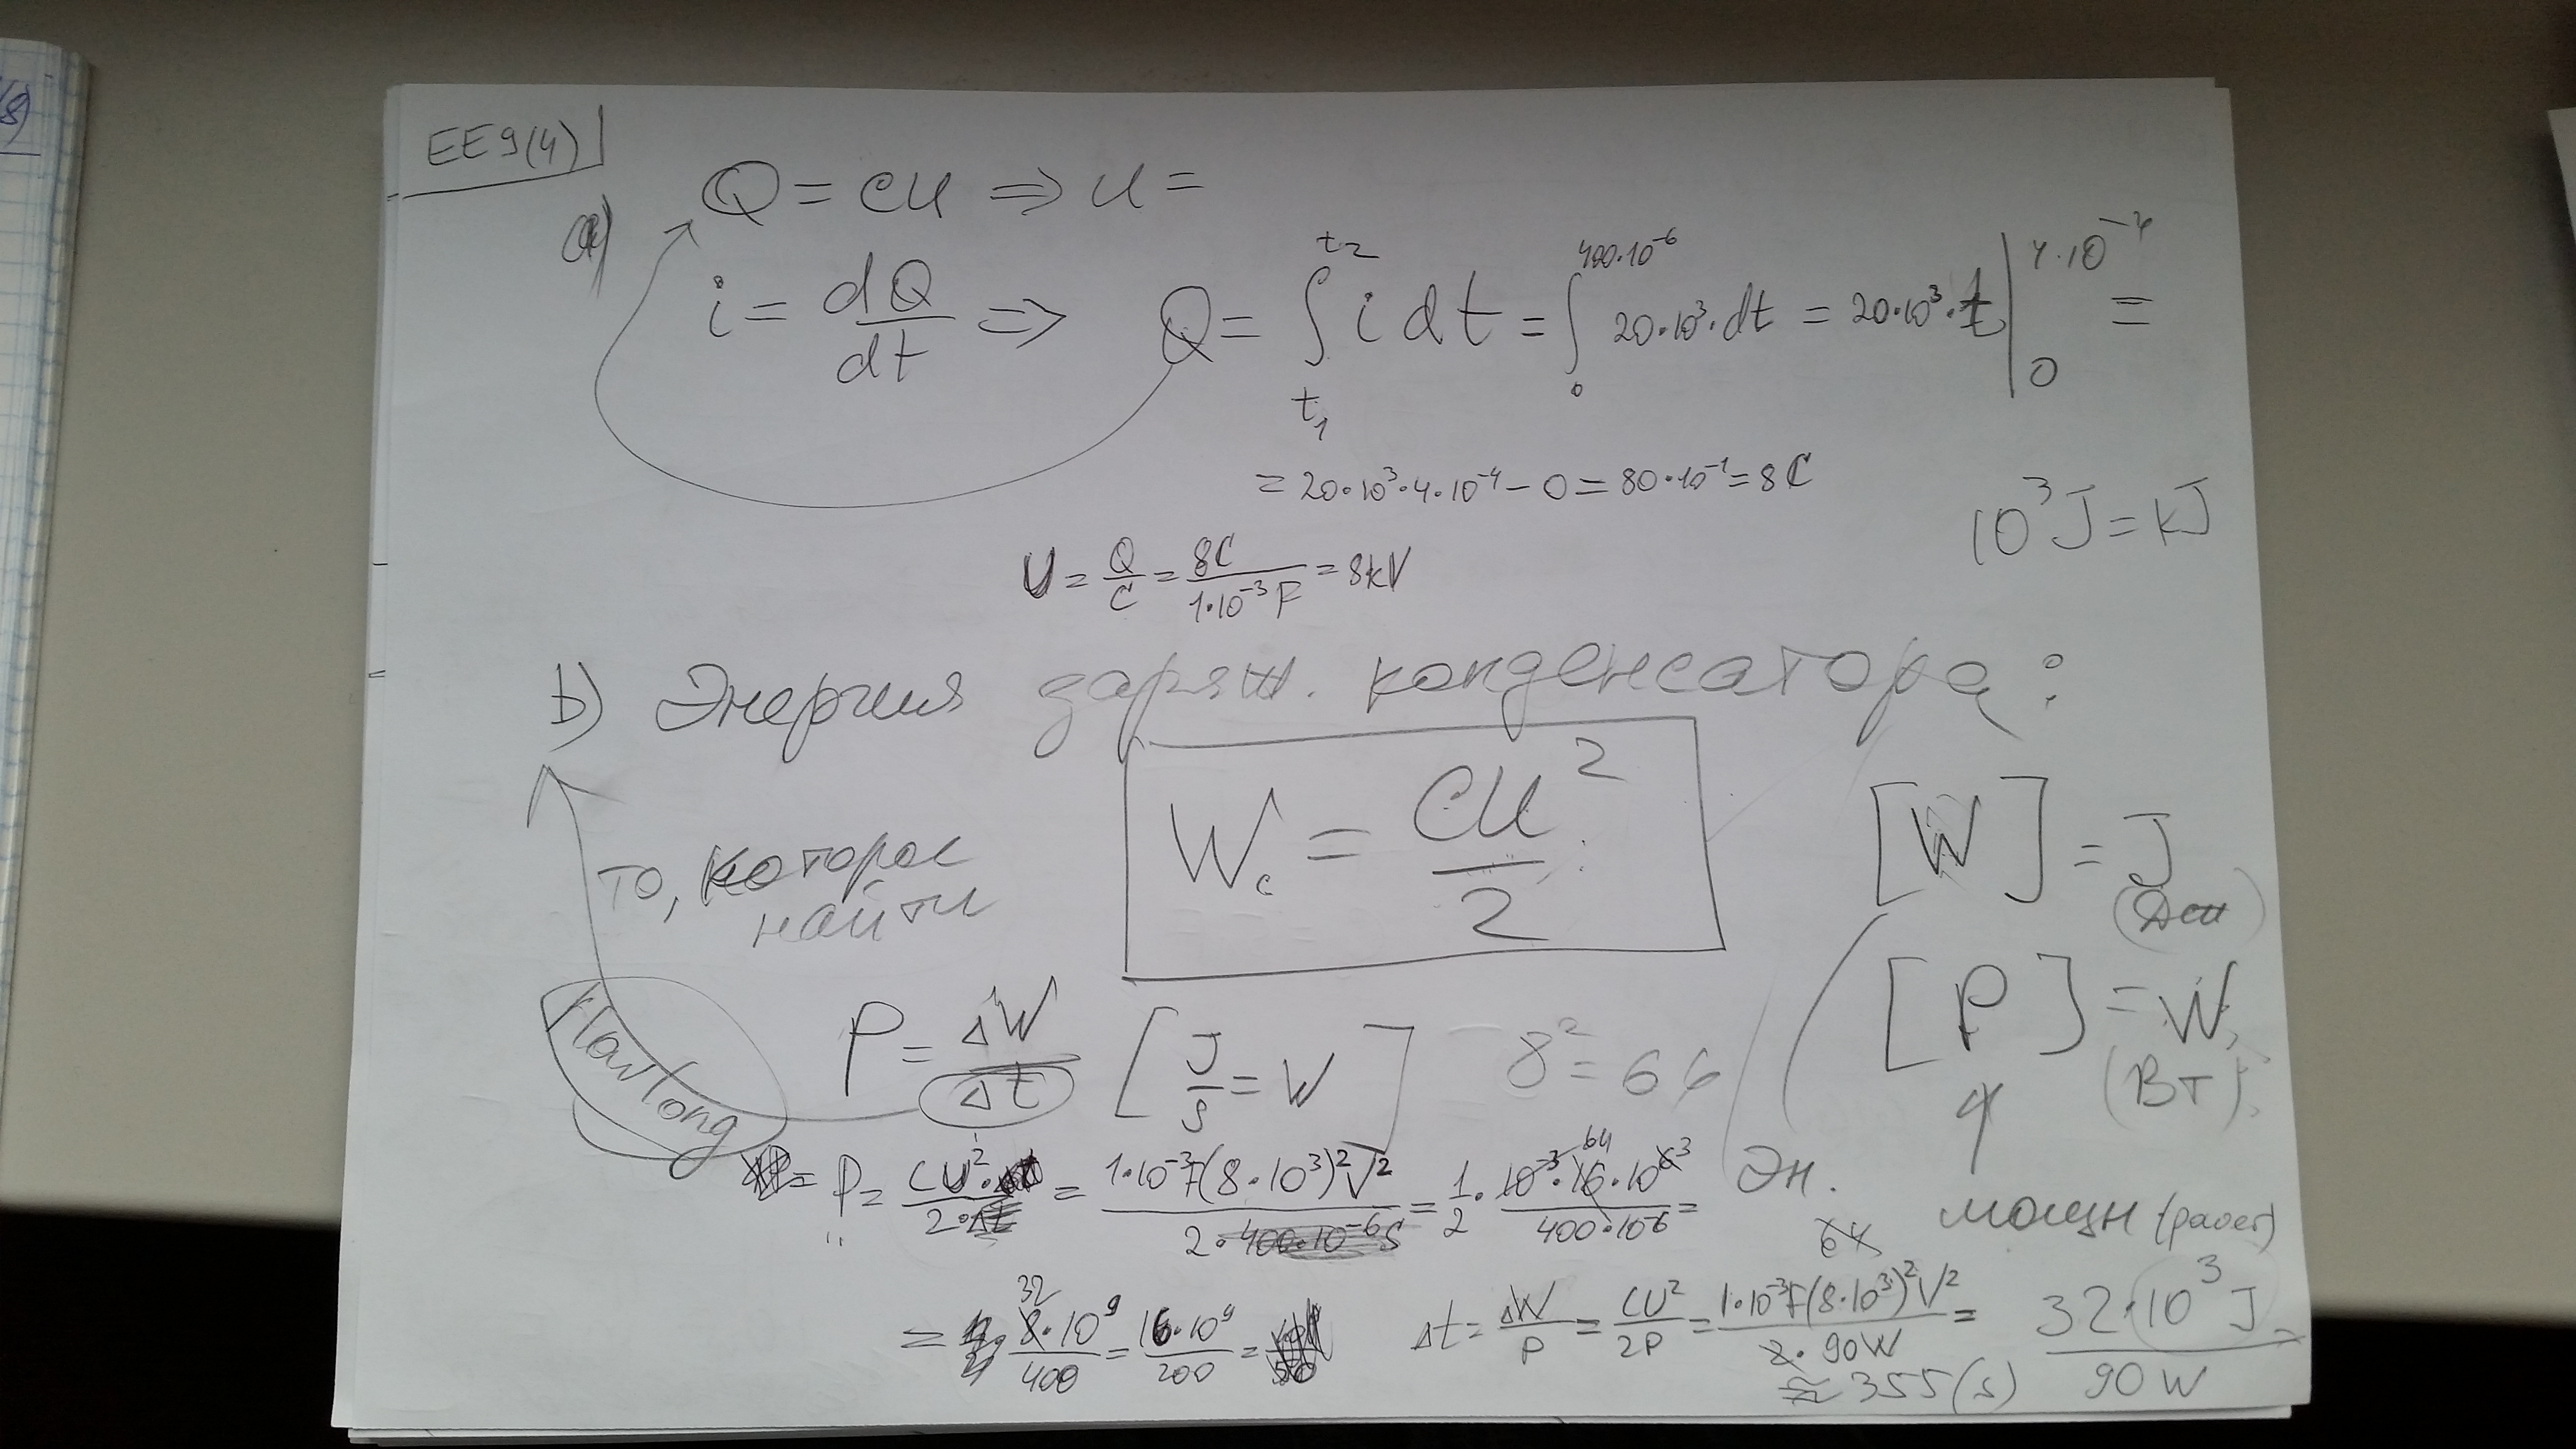 EE9(4)
a) Q = CU ⇒ U =
i = dQ/dt ⇒ Q = ∫_{t_1}^{t_2} i dt = ∫_0^{400·10^{-6}} 20·10^3·dt = 20·10^3·t |_0^{4·10^{-4}} =
= 20·10^3·4·10^{-4} − 0 = 80·10^{-1} = 8 C
10^3 J = kJ
U = Q/C = 8C/(1·10^{-3} F) = 8kV
b) Энергия заряж. конденсатора:
W_c = CU^2/2
[W] = J
то, которое
найти
[P] = W
(Вт)
How long
P = ΔW/Δt [J/s = W] 8^2 = 64
P = CU^2/2·Δt = 1·10^{-3}F(8·10^3)^2V^2/2·400·10^{-6}s = 1/2 · 10^{-3}·64·10^6/400·10^{-6} =
Эн.
мощн (power)
64
= 32·10^9/400 = 16·10^9/200 =
Δt = ΔW/P = CU^2/2P = 1·10^{-3}F(8·10^3)^2V^2/2·90W = 32·10^3 J/90W =
≈ 355(s)